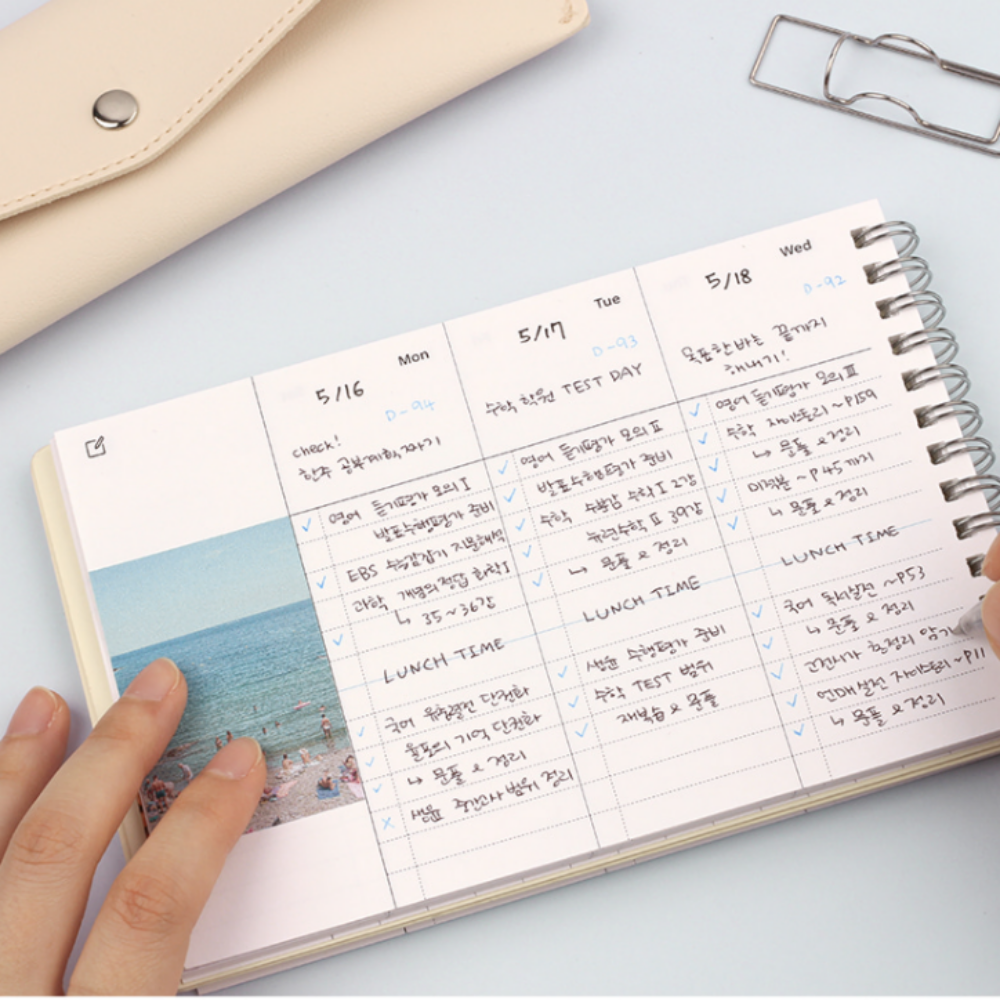 Mon
5/16
D-94
check!
한주 공부계획 짜기
영어 듣기평가 모의 I
발표수행평가 준비
EBS 수능감잡기 지문해석
과학 개념의 정답 화학 I
↳ 35~36강
LUNCH TIME
국어 유형실전 단권화
윤포의 기억 단권화
↳ 문풀 & 정리
생윤 중간고사 범위 정리
Tue
5/17
D-93
수학 학원 TEST DAY
영어 듣기평가 모의 II
발표수행평가 준비
수학 수분감 수학 I 2강
뉴런수학 II 39강
↳ 문풀 & 정리
LUNCH TIME
생윤 수행평가 준비
수학 TEST 범위
재복습 & 문풀
Wed
5/18
D-92
목표한바는 끝까지
해내기!
영어 듣기평가 모의 III
수학 자이스토리 ~P159
↳ 문풀 & 정리
미적분 ~P45까지
↳ 문풀 & 정리
LUNCH TIME
국어 독서실전 ~P53
↳ 문풀 & 정리
고전시가 한정리 암기
언매실전 자이스토리 ~P11
↳ 문풀 & 정리